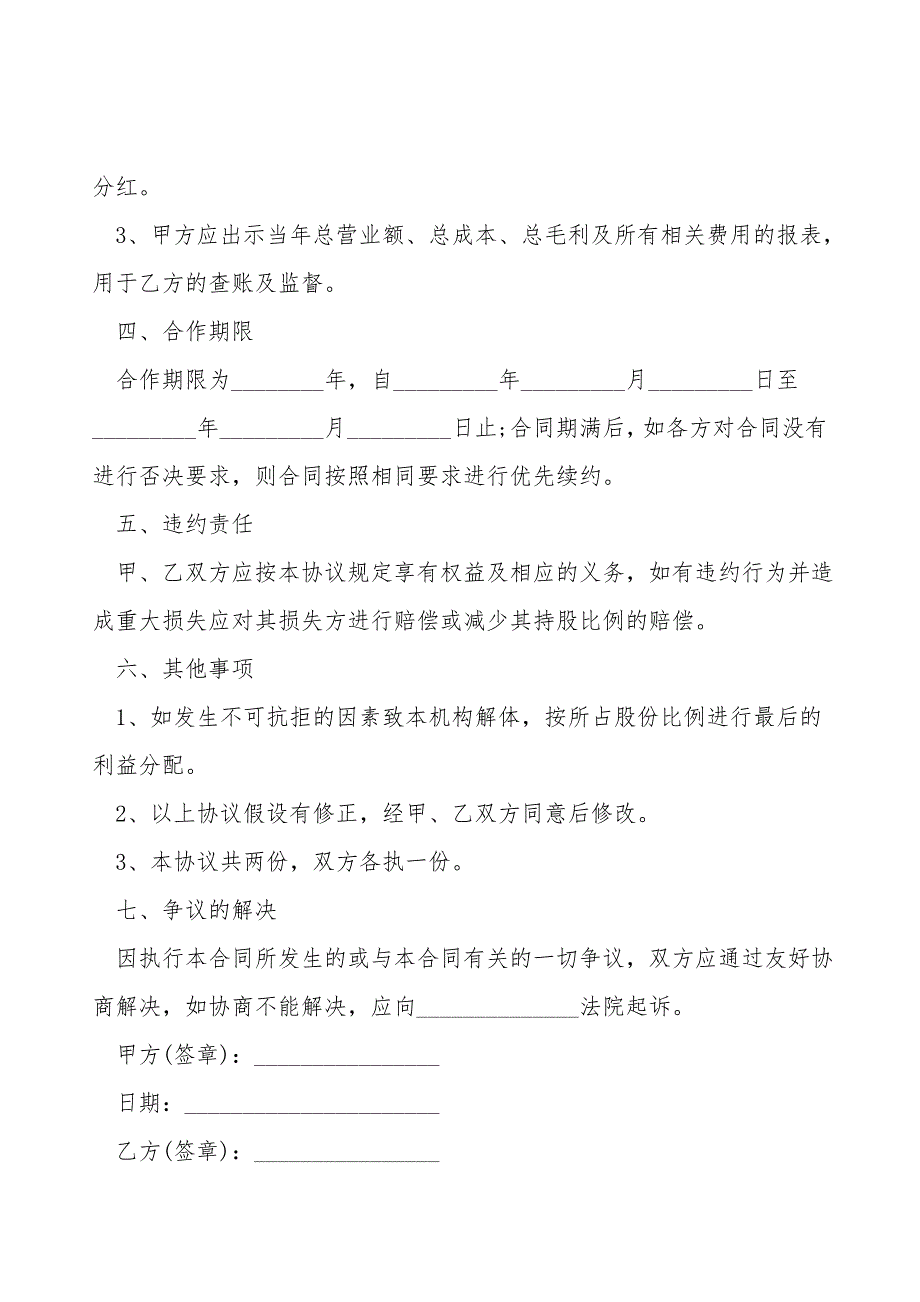 分红。
3、甲方应出示当年总营业额、总成本、总毛利及所有相关费用的报表，
用于乙方的查账及监督。
四、合作期限
合作期限为________年，自_________年_________月_________日至
_________年_________月_________日止;合同期满后，如各方对合同没有
进行否决要求，则合同按照相同要求进行优先续约。
五、违约责任
甲、乙双方应按本协议规定享有权益及相应的义务，如有违约行为并造
成重大损失应对其损失方进行赔偿或减少其持股比例的赔偿。
六、其他事项
1、如发生不可抗拒的因素致本机构解体，按所占股份比例进行最后的
利益分配。
2、以上协议假设有修正，经甲、乙双方同意后修改。
3、本协议共两份，双方各执一份。
七、争议的解决
因执行本合同所发生的或与本合同有关的一切争议，双方应通过友好协
商解决，如协商不能解决，应向______________法院起诉。
甲方(签章)：________________
日期：______________________
乙方(签章)：________________